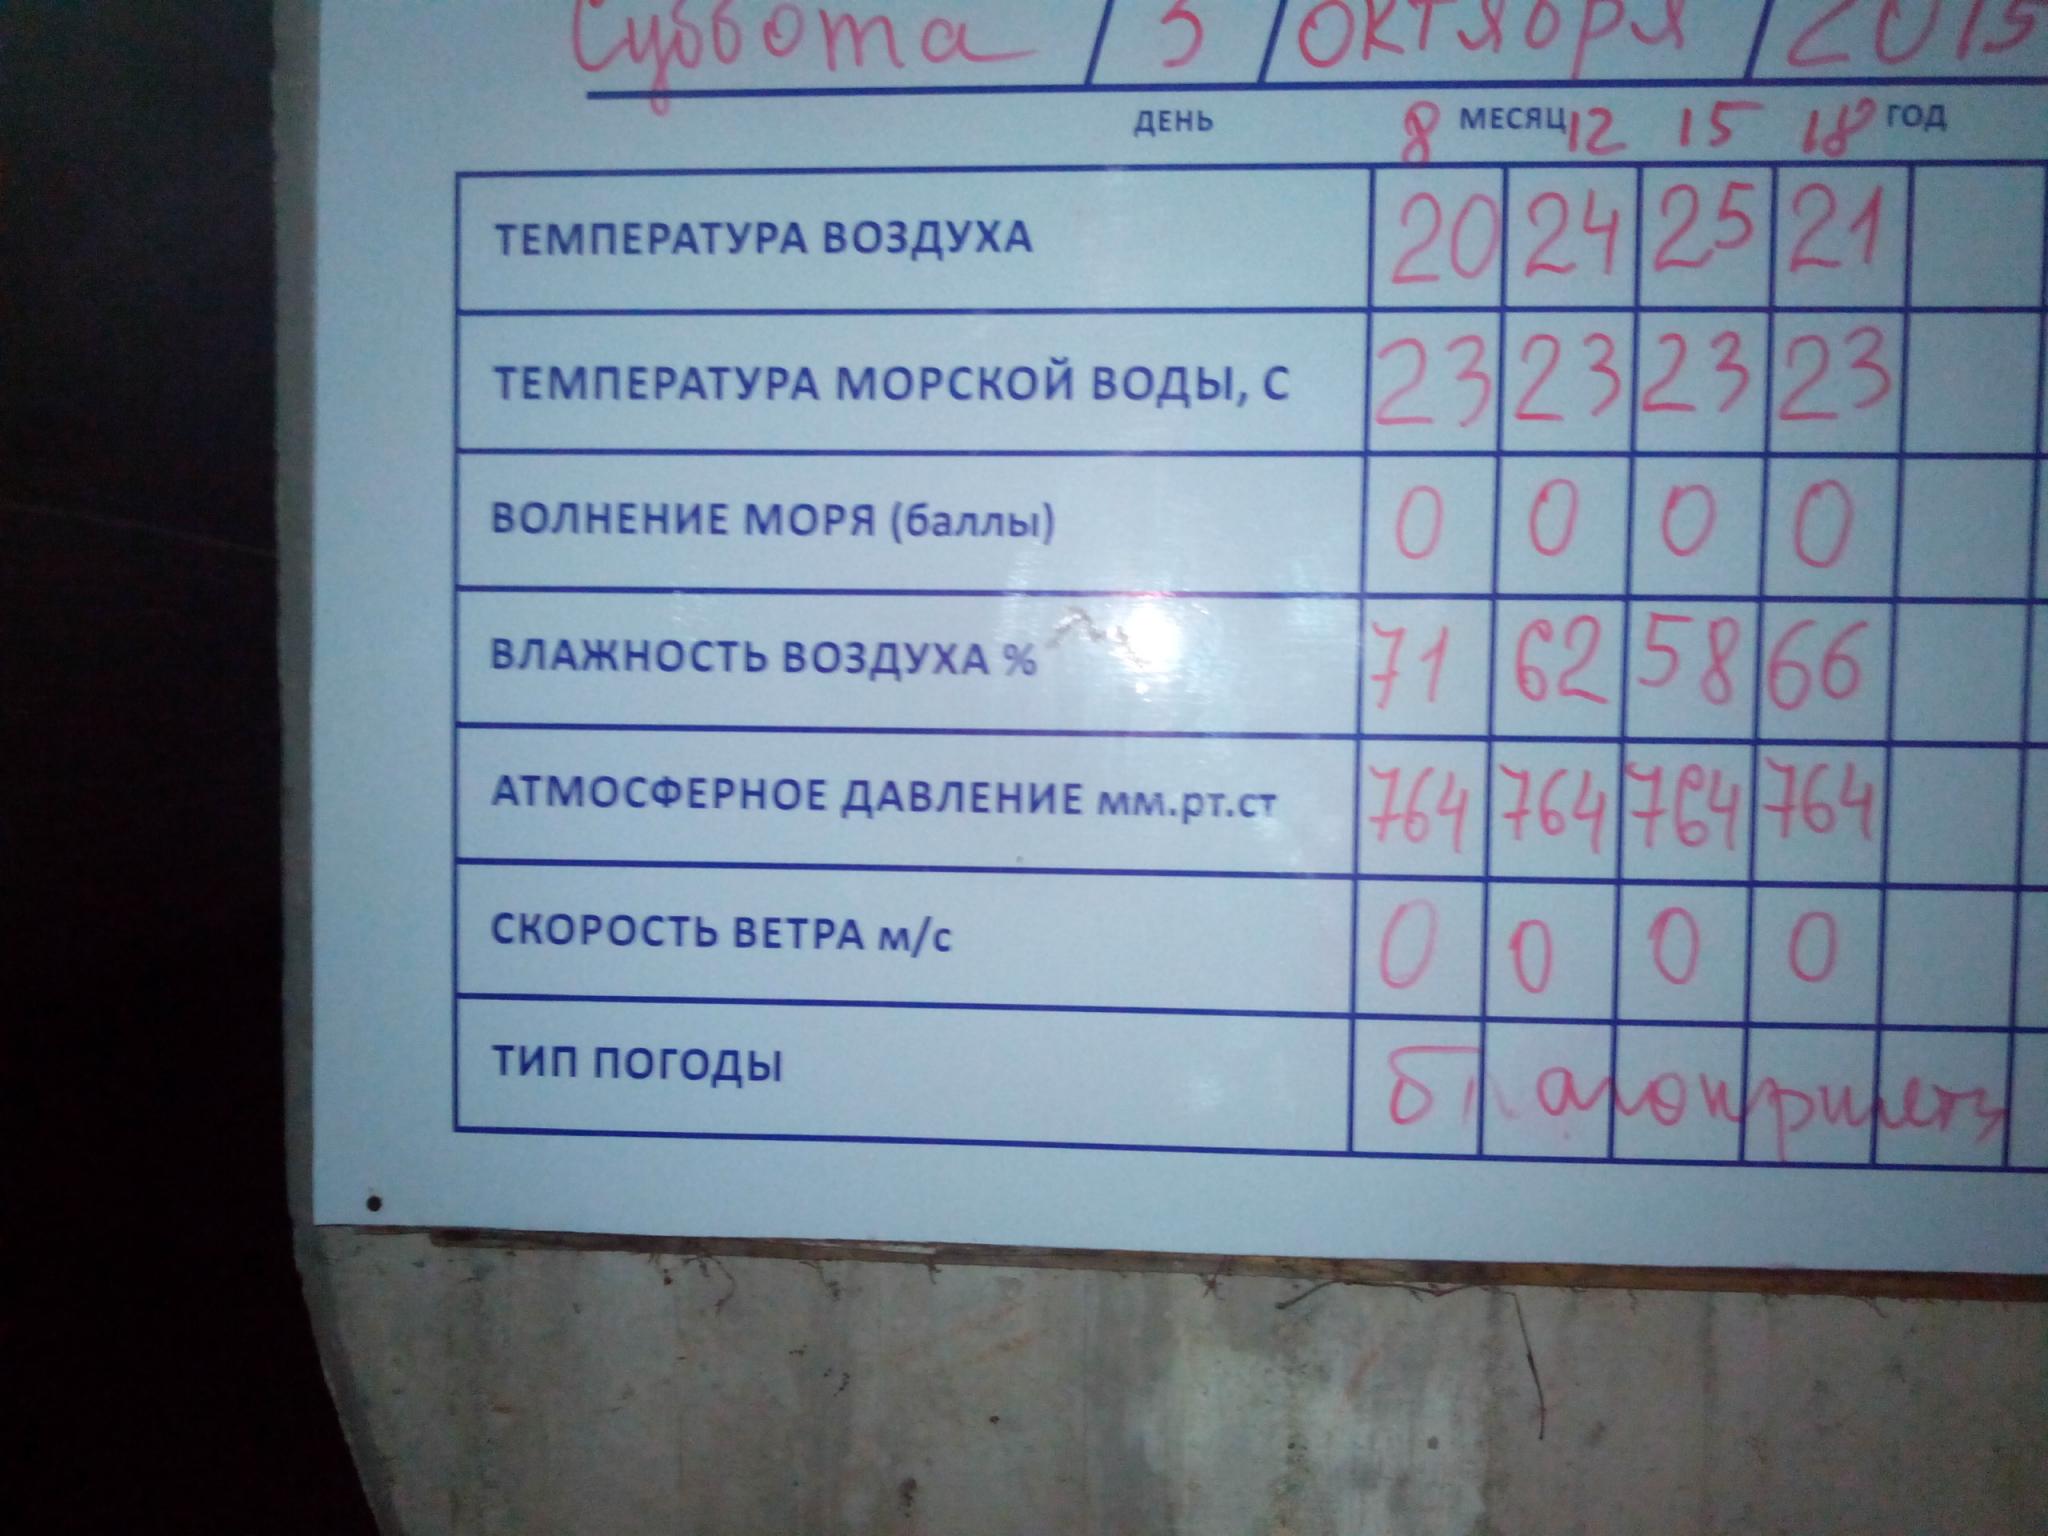 Суббота / 3 / октября / 2015
ДЕНЬ МЕСЯЦ ГОД
8 12 15 18
ТЕМПЕРАТУРА ВОЗДУХА 20 24 25 21
ТЕМПЕРАТУРА МОРСКОЙ ВОДЫ, С 23 23 23 23
ВОЛНЕНИЕ МОРЯ (баллы) 0 0 0 0
ВЛАЖНОСТЬ ВОЗДУХА % 71 62 58 66
АТМОСФЕРНОЕ ДАВЛЕНИЕ мм.рт.ст 764 764 764 764
СКОРОСТЬ ВЕТРА м/с 0 0 0 0
ТИП ПОГОДЫ